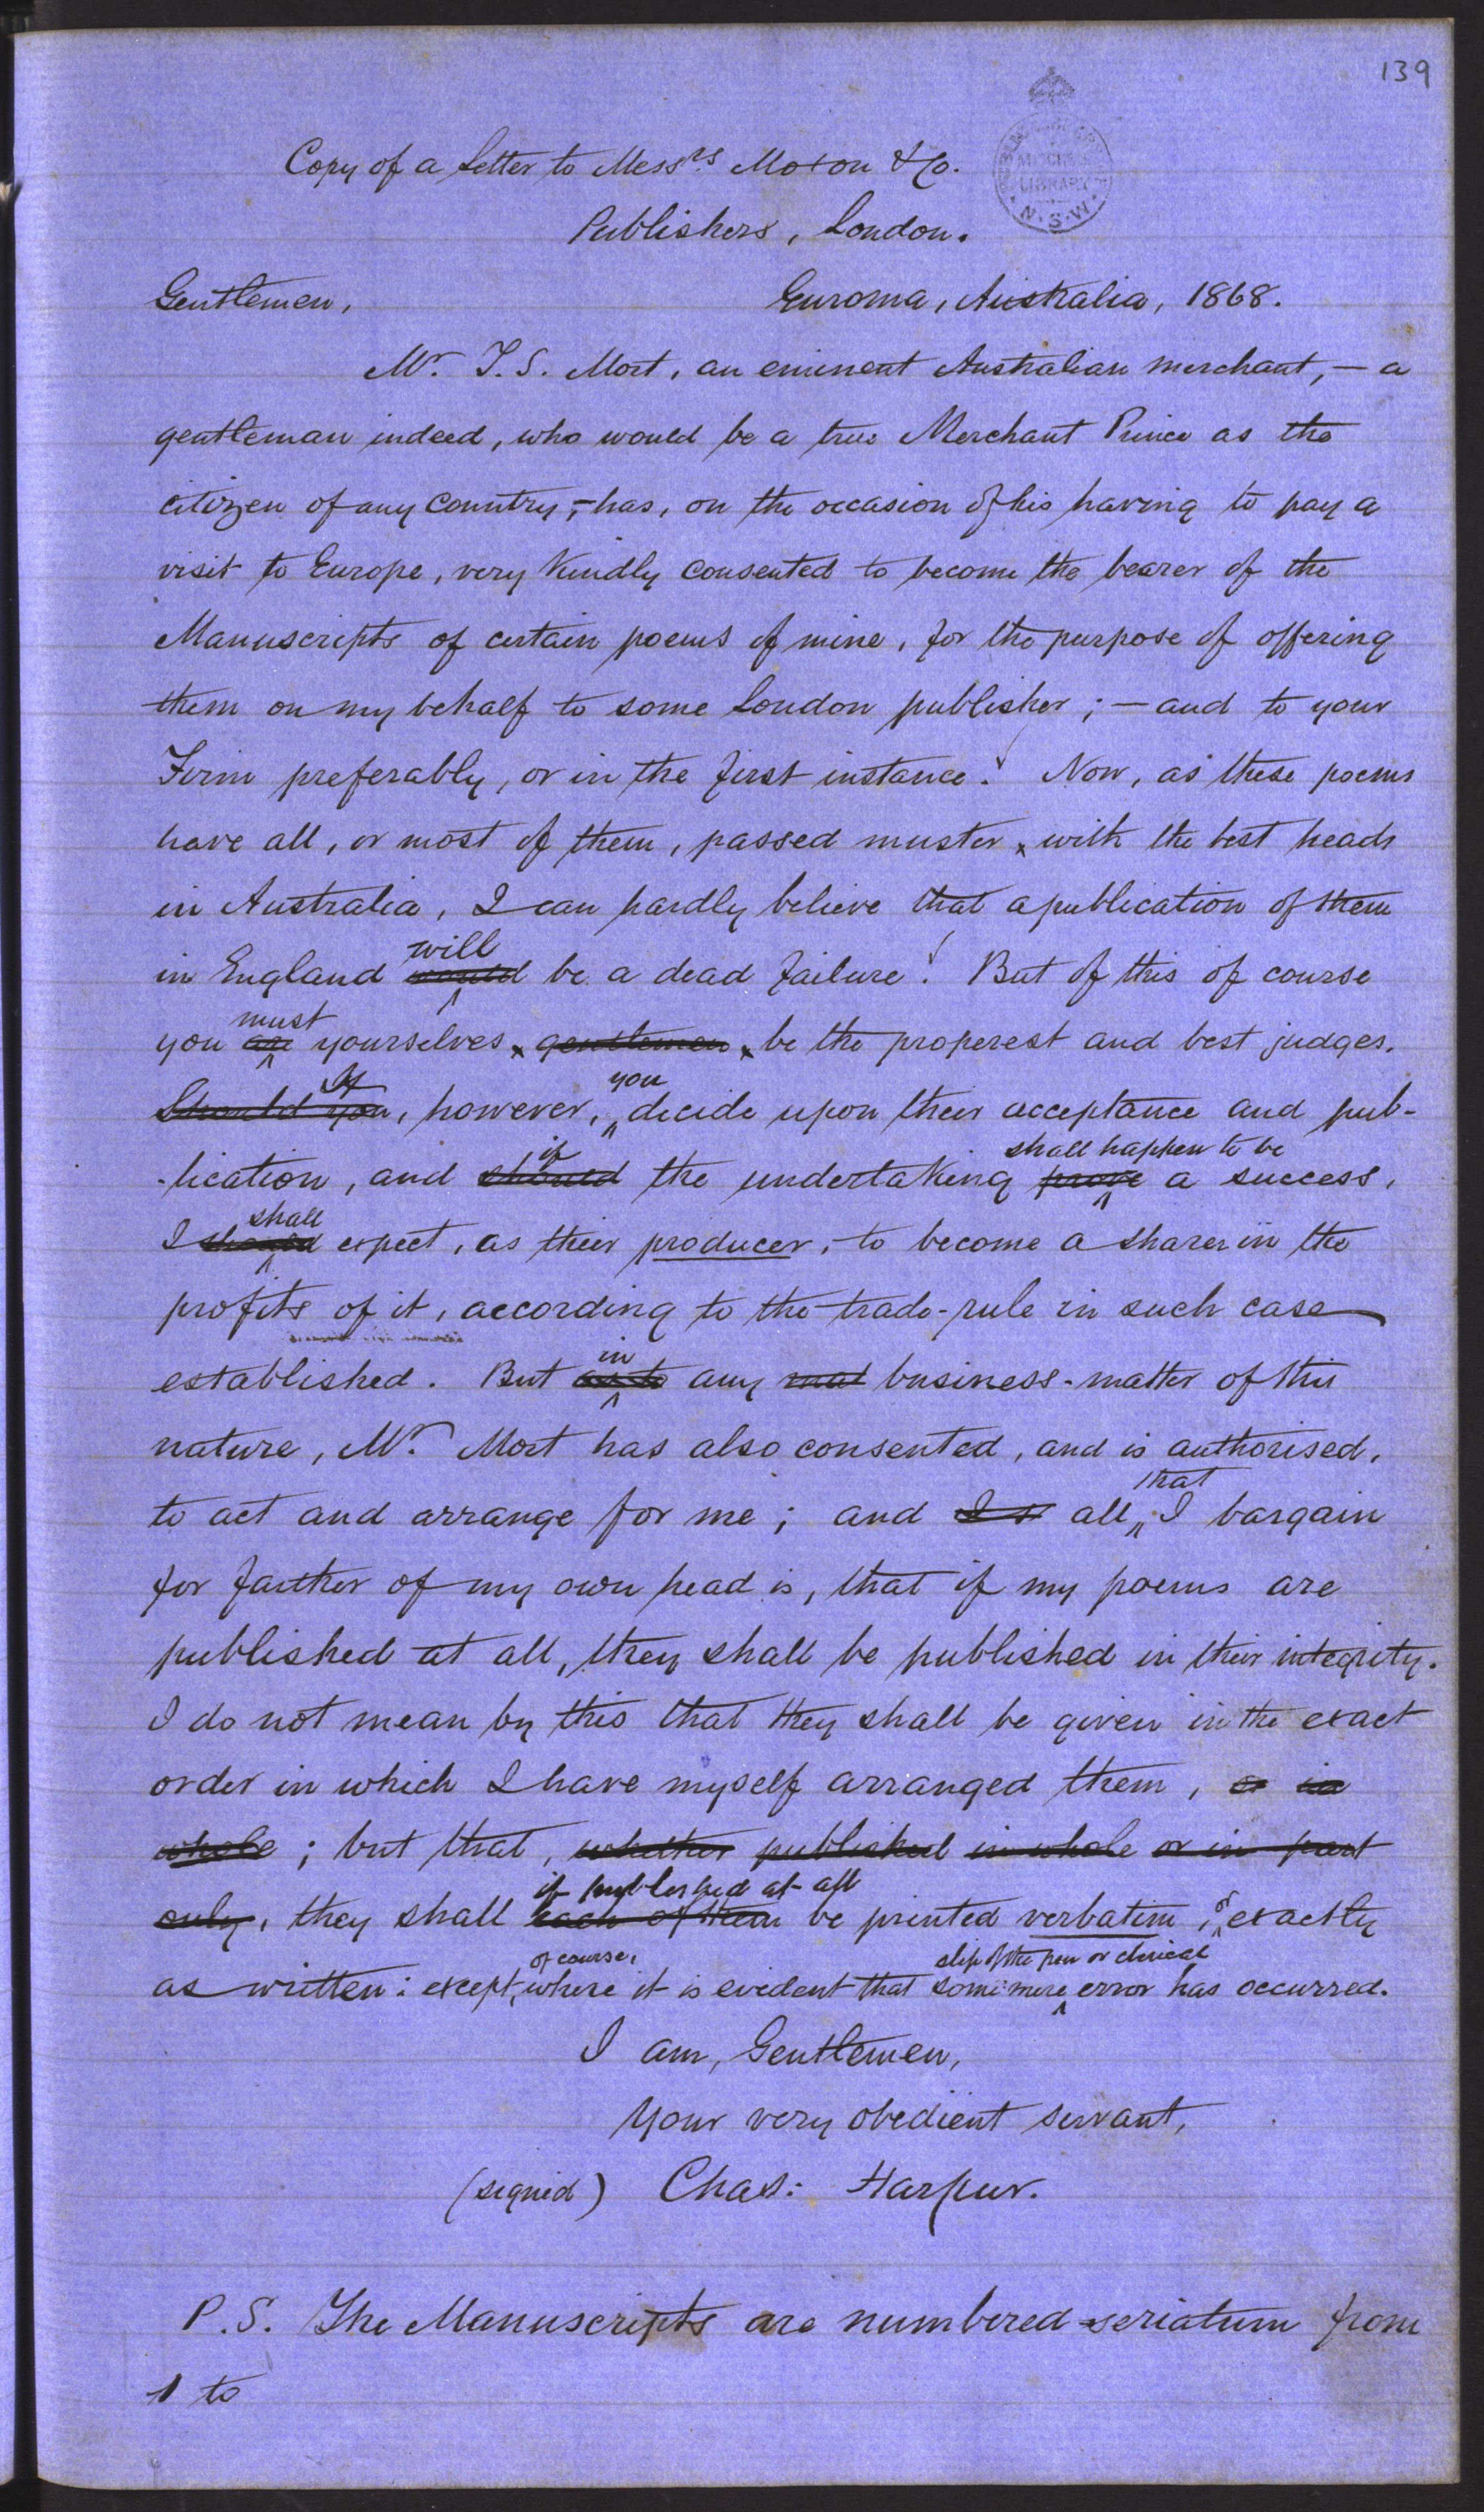 139
Copy of a Letter to Messrs Moxon & Co.
Publishers, London.
Gentlemen,
Euroma, Australia, 1868.
Mr. T. S. Mort, an eminent Australian merchant, — a
gentleman indeed, who would be a true Merchant Prince as the
citizen of any country, — has, on the occasion of his having to pay a
visit to Europe, very kindly consented to become the bearer of the
Manuscripts of certain poems of mine, for the purpose of offering
them on my behalf to some London publisher; — and to your
Firm preferably, or in the first instance! Now, as these poems
have all, or most of them, passed muster with the best heads
in Australia, I can hardly believe that a publication of them
will
in England would be a dead failure! But of this of course
must
you are yourselves gentlemen be the properest and best judges.
If you
Should you, however, decide upon their acceptance and pub-
if shall happen to be
-lication, and should the undertaking prove a success,
shall
I should expect, as their producer, to become a sharer in the
profits of it, according to the trade-rule in such case
in
established. But as to any business-matter of this
nature, Mr. Mort has also consented, and is authorised,
that
to act and arrange for me; and all I bargain
for farther of my own head is, that if my poems are
published at all, they shall be published in their integrity.
I do not mean by this that they shall be given in the exact
order in which I have myself arranged them, or in
whole; but that, whether published in whole or in part
if published at all
only, they shall each of them be printed verbatim, or exactly
of course, slip of the pen or clerical
as written: except, where it is evident that some mere error has occurred.
I am, Gentlemen,
Your very obedient servant,
(signed) Chas: Harpur.
P.S. The Manuscripts are numbered seriatum from
1 to
MITCHELL
LIBRARY
N.S.W.